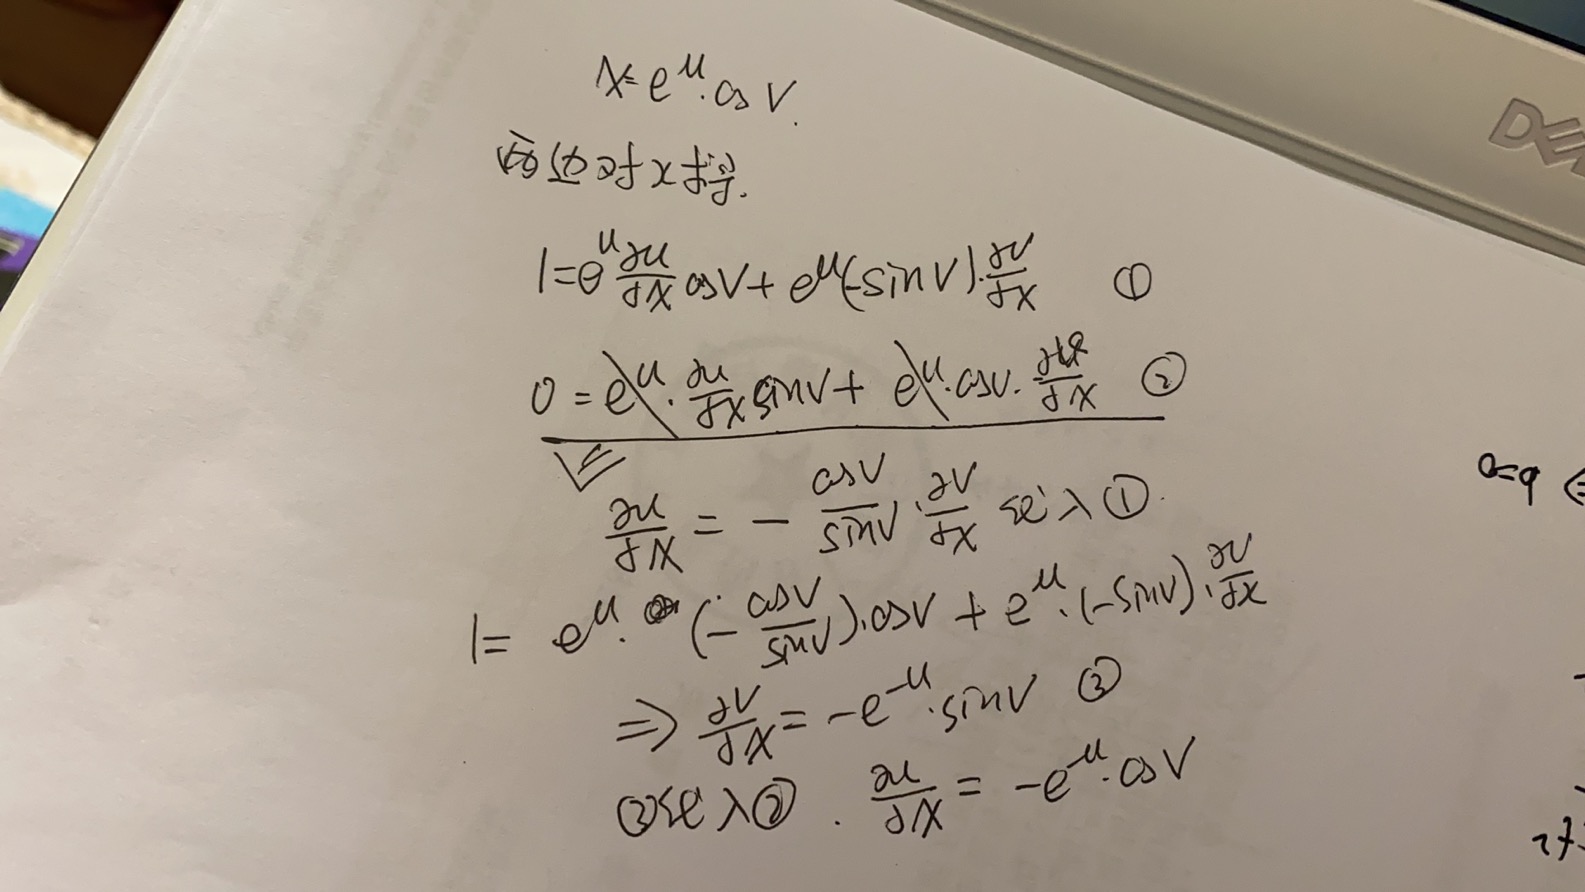 x=e^u·cos v.
两边对x求导.
1=e^u ∂u/∂x cos v + e^u(-sin v)·∂v/∂x ①
0 = e^u·∂u/∂x sin v + e^u·cos v·∂v/∂x ②
∂u/∂x = - cos v/sin v·∂v/∂x 代入①.
1= e^u·(-cos v/sin v)·cos v + e^u·(-sin v)·∂v/∂x
⇒ ∂v/∂x = -e^-u·sin v ③
③代入②. ∂u/∂x = -e^-u·cos v
DELL